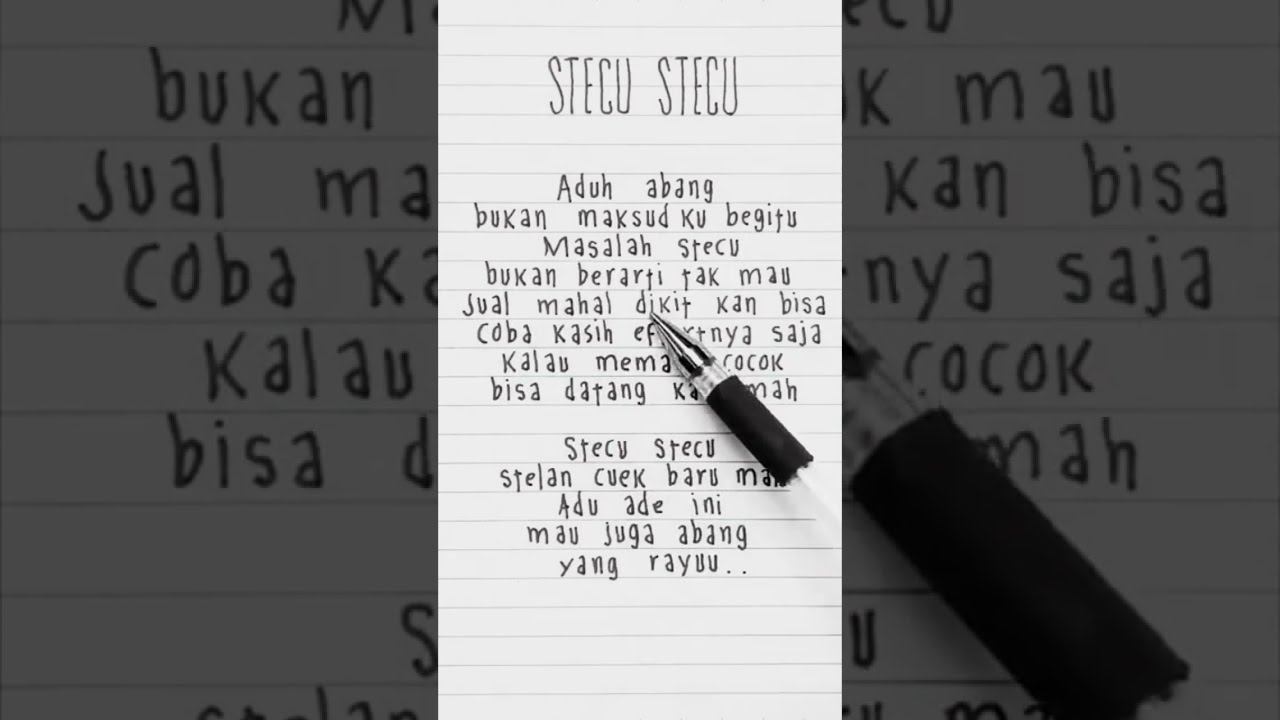 STECU STECU
Aduh abang
bukan maksud ku begitu
Masalah stecu
bukan berarti tak mau
Jual mahal dikit kan bisa
coba kasih saja
Kalau cocok
bisa datang
Stecu stecu
stelan cuek baru
Adu ade ini
mau juga abang
yang rayuu..